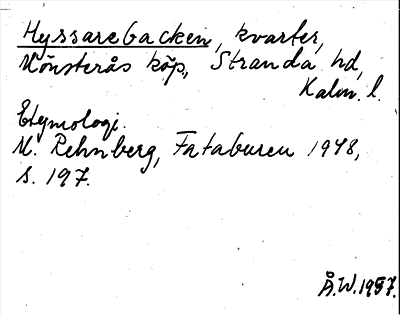 Hyssarebacken, kvarter,
Mönsterås köp., Stranda hd,
Kalm. l.
Etymologi.
M. Rehnberg, Fataburen 1948,
s. 197.
Å.W. 1957.